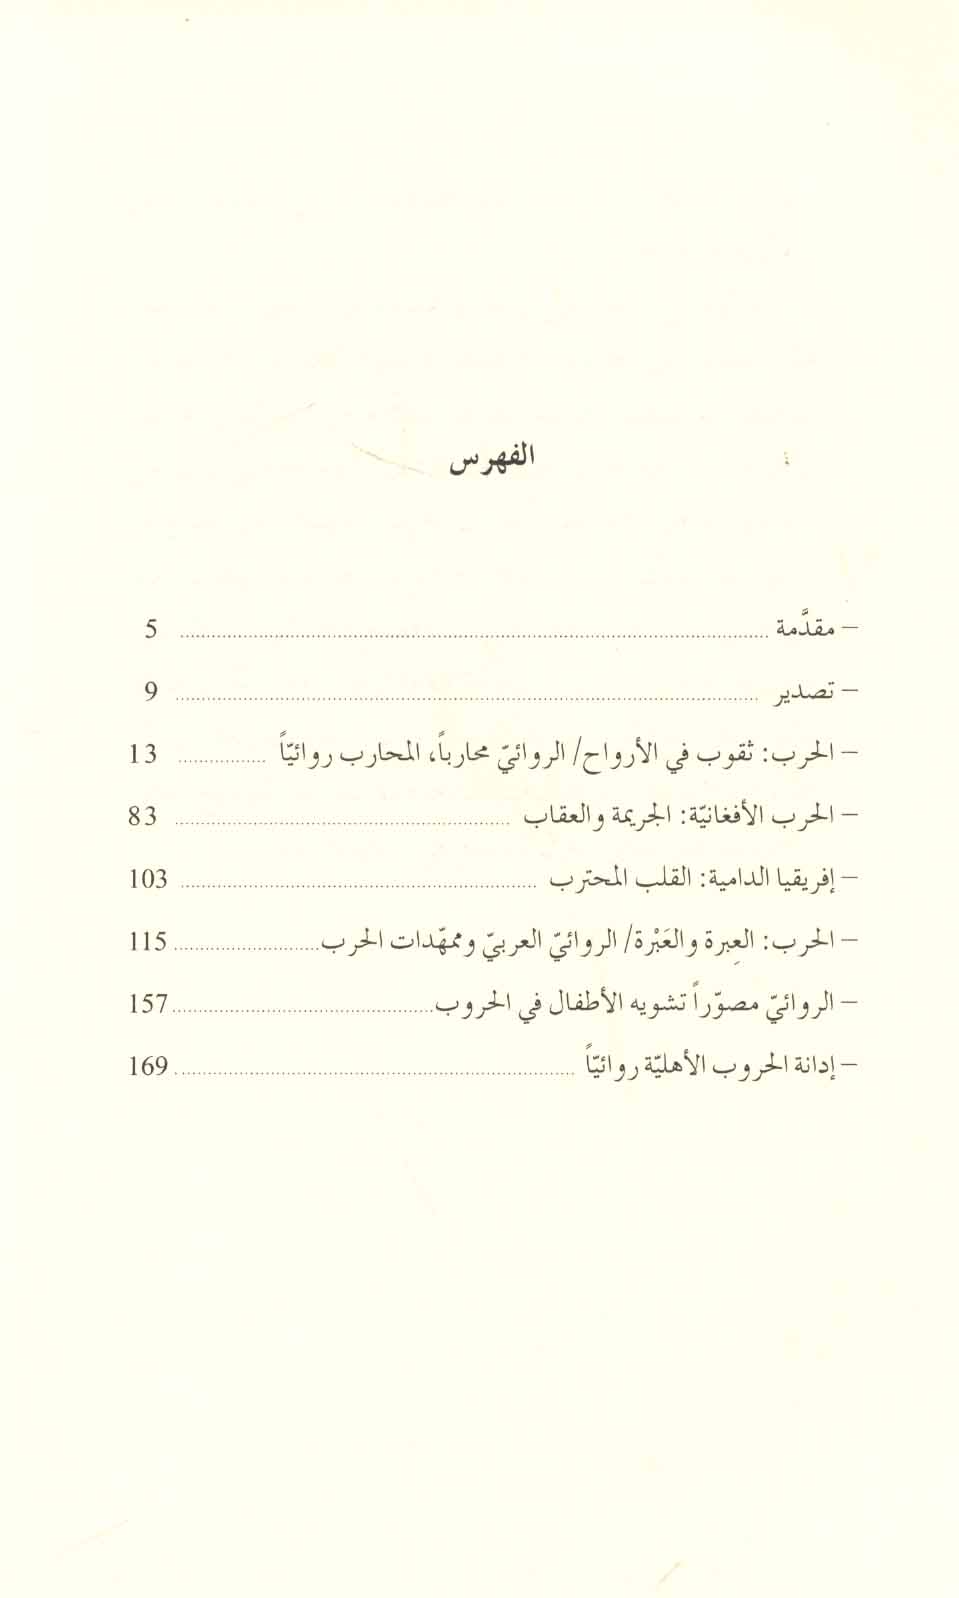 الفهرس
– مقدَّمة ........ 5
– تصدير ........ 9
– الحرب: ثقوب في الأرواح/ الروائيّ محارباً، المحارب روائيّاً ........ 13
– الحرب الأفغانيّة: الجريمة والعقاب ........ 83
– إفريقيا الدامية: القلب المحترب ........ 103
– الحرب: العِبرة والعَبْرة/ الروائيّ العربيّ وممهّدات الحرب ........ 115
– الروائيّ مصوّراً تشويه الأطفال في الحروب ........ 157
– إدانة الحروب الأهليّة روائيّاً ........ 169